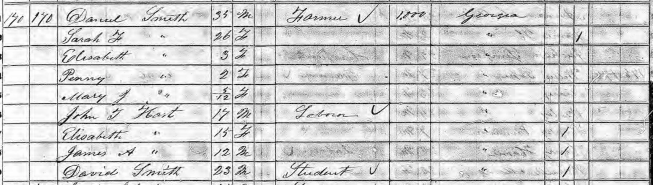 170 170 Daniel Smith 35 M Farmer 1,000 Georgia
Sarah F " 26 F " 1
Elisabeth " 3 F "
Penny " 2 F "
Mary J " /12 F "
John T Hast 17 M Labor "
Elisabeth " 15 F " 1
James A " 12 M " 1
David Smith 23 M Student " 1